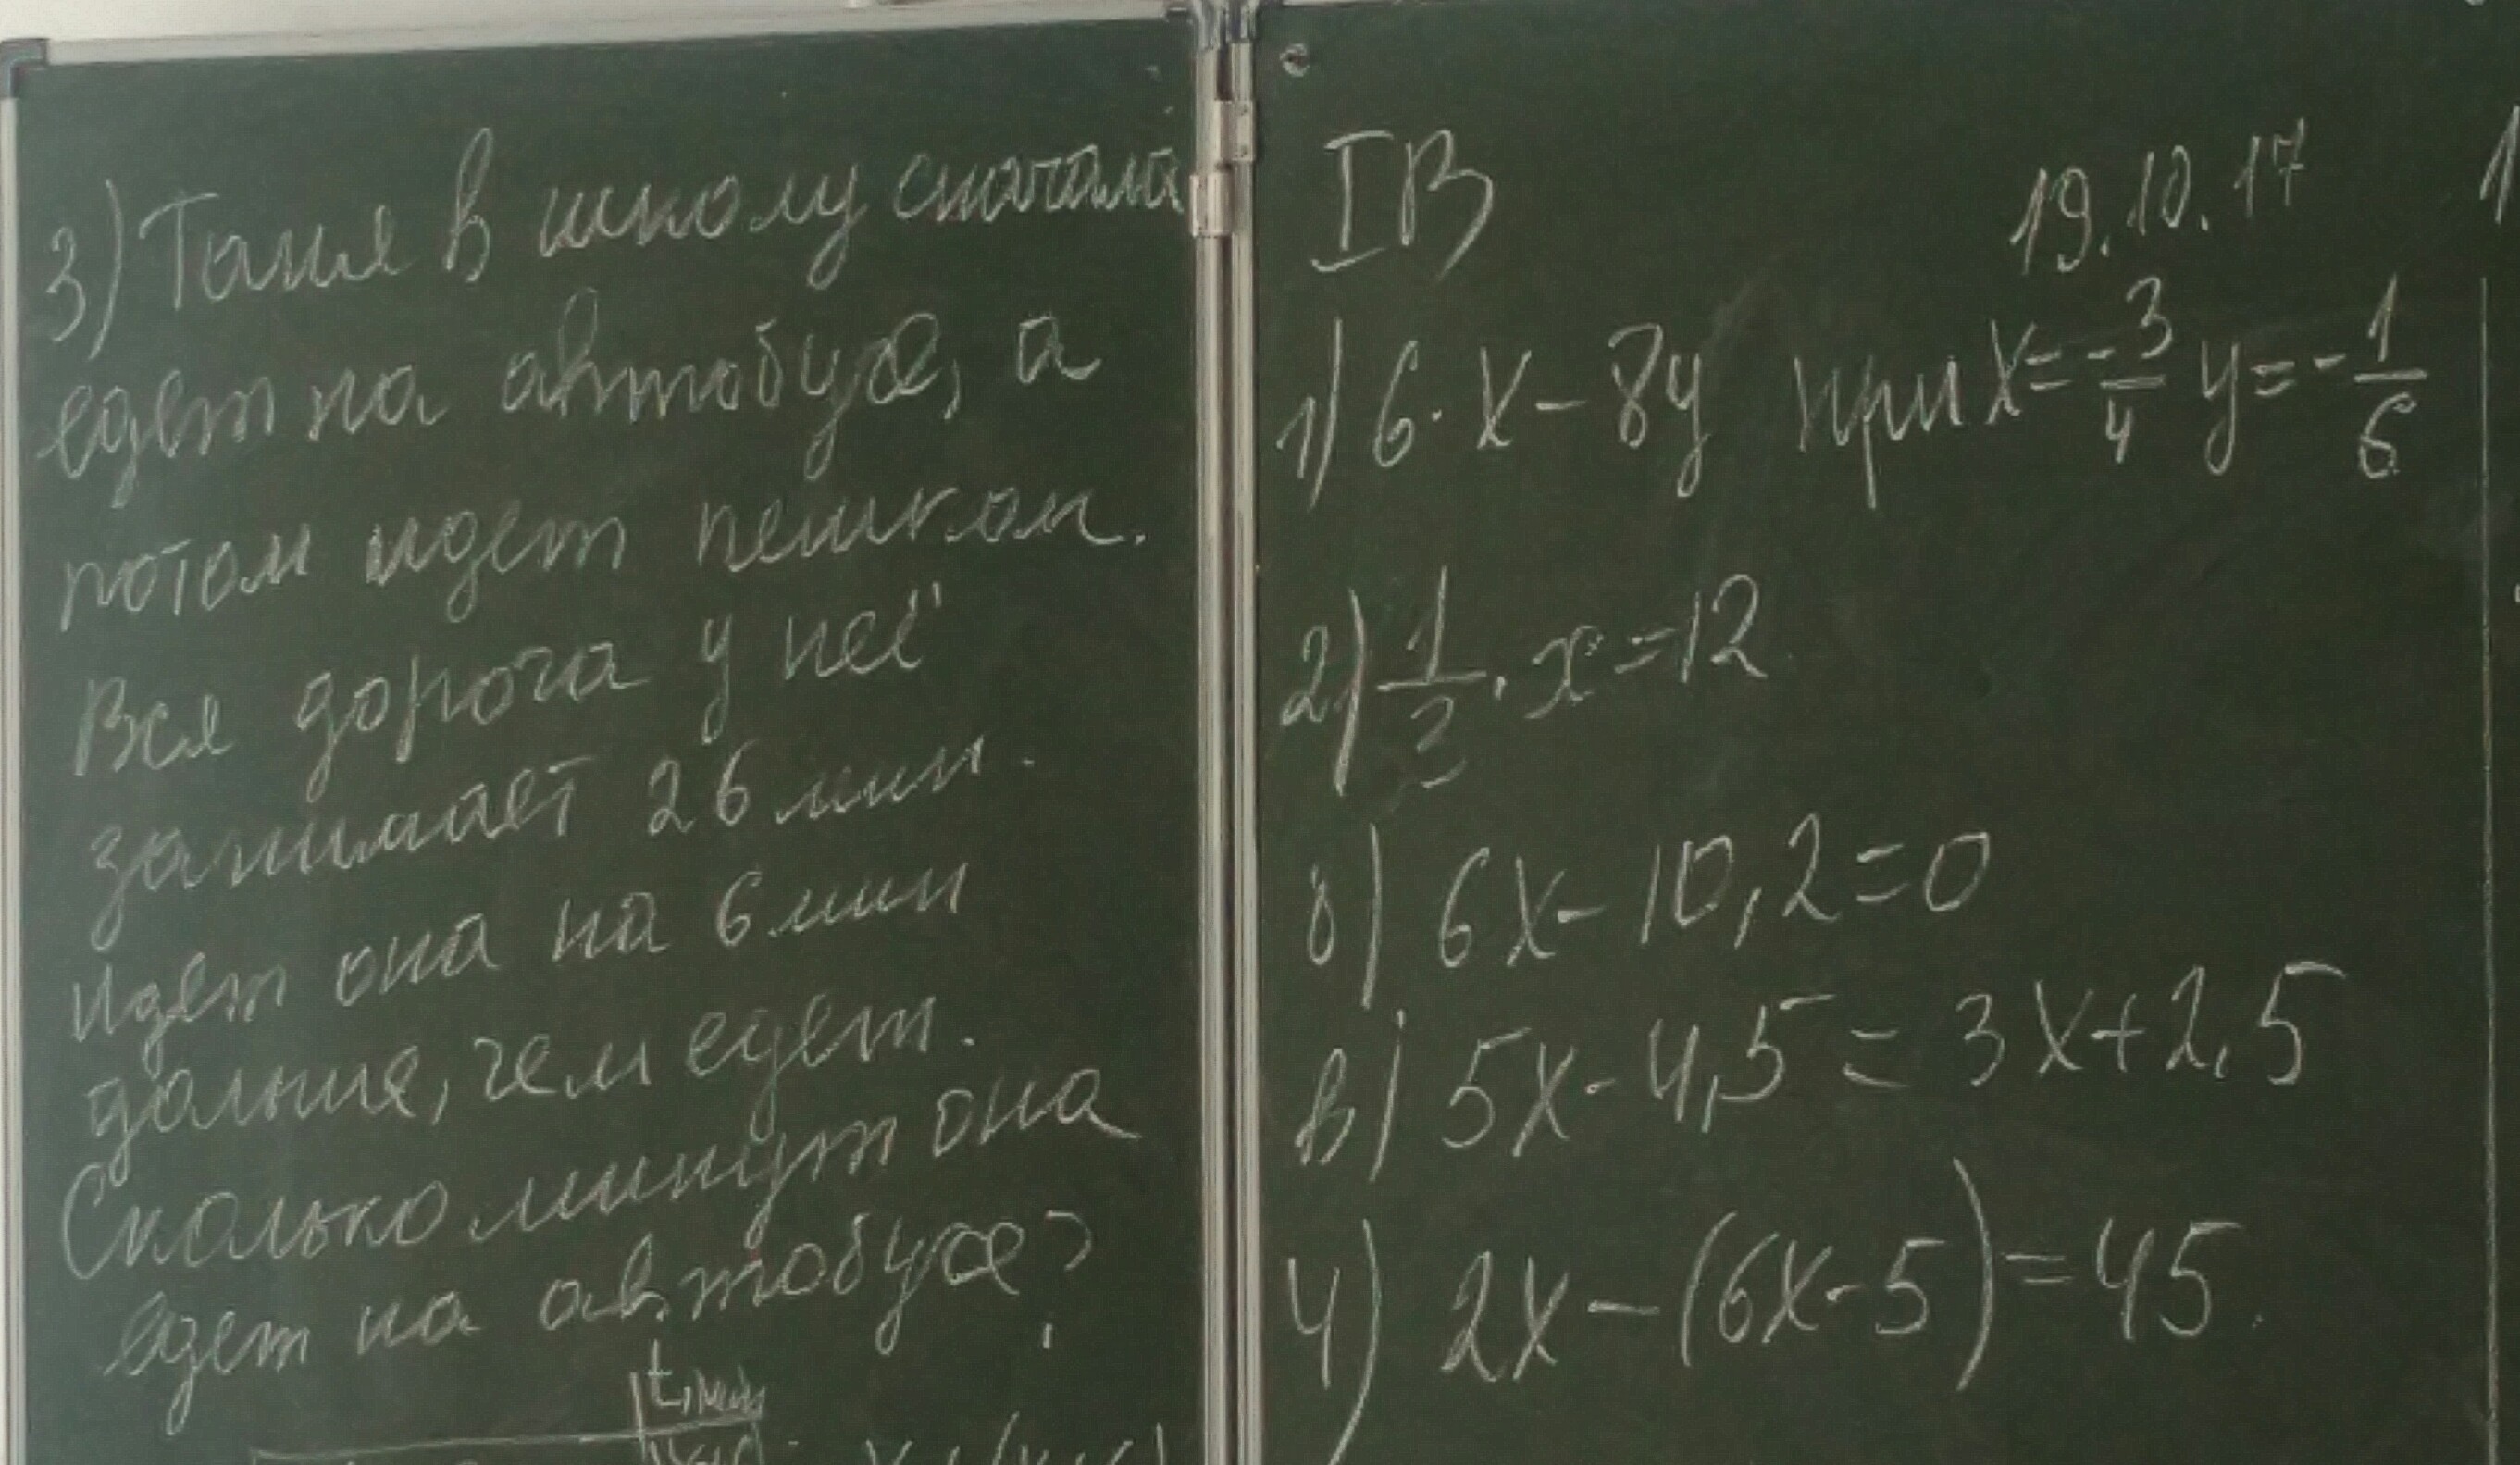 3) Таня в школу сначала
едет на автобусе, а
потом идет пешком.
Вся дорога у неё
занимает 26 мин.
Идет она на 6 мин
дольше, чем едет.
Сколько минут она
едет на автобусе?
t, мин
I В
19.10.17
1) 6 · x - 8y при x = -3/4 y = -1/6
2) 1/3 · x = 12
б) 6x - 10,2 = 0
в) 5x - 4,5 = 3x + 2,5
4) 2x - (6x - 5) = 45